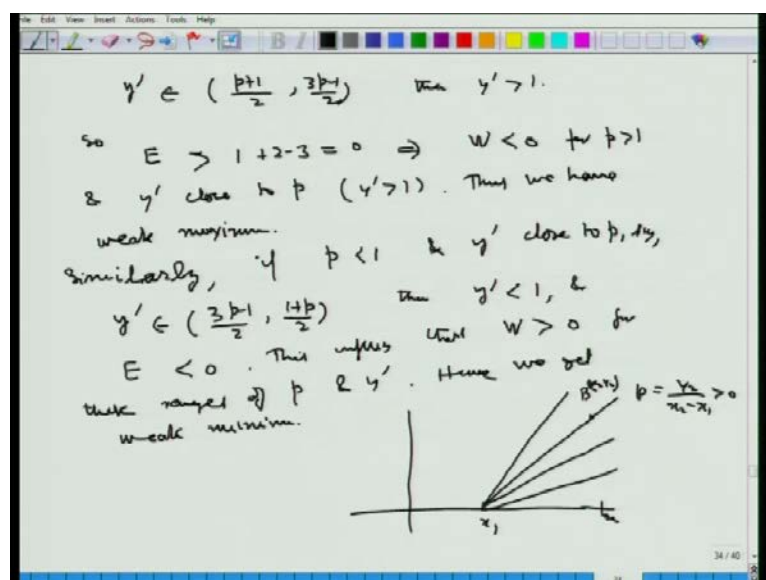 File Edit View Insert Actions Tools Help
y' ∈ ( p+1/2 , 3p-1/2 ) then y' > 1.
So E > 1 + 2 - 3 = 0 ⇒ W < 0 for p > 1
& y' close to p (y' > 1). Thus we have
weak maximum.
Similarly, if p < 1 & y' close to p, say,
y' ∈ ( 3p-1/2 , 1+p/2 ) then y' < 1, &
E < 0. This implies that W > 0 for
these ranges of p & y'. Hence we get
weak minimum.
B(x₂,y₂) p = y₂/x₂-x₁ > 0
x₁
34 / 40